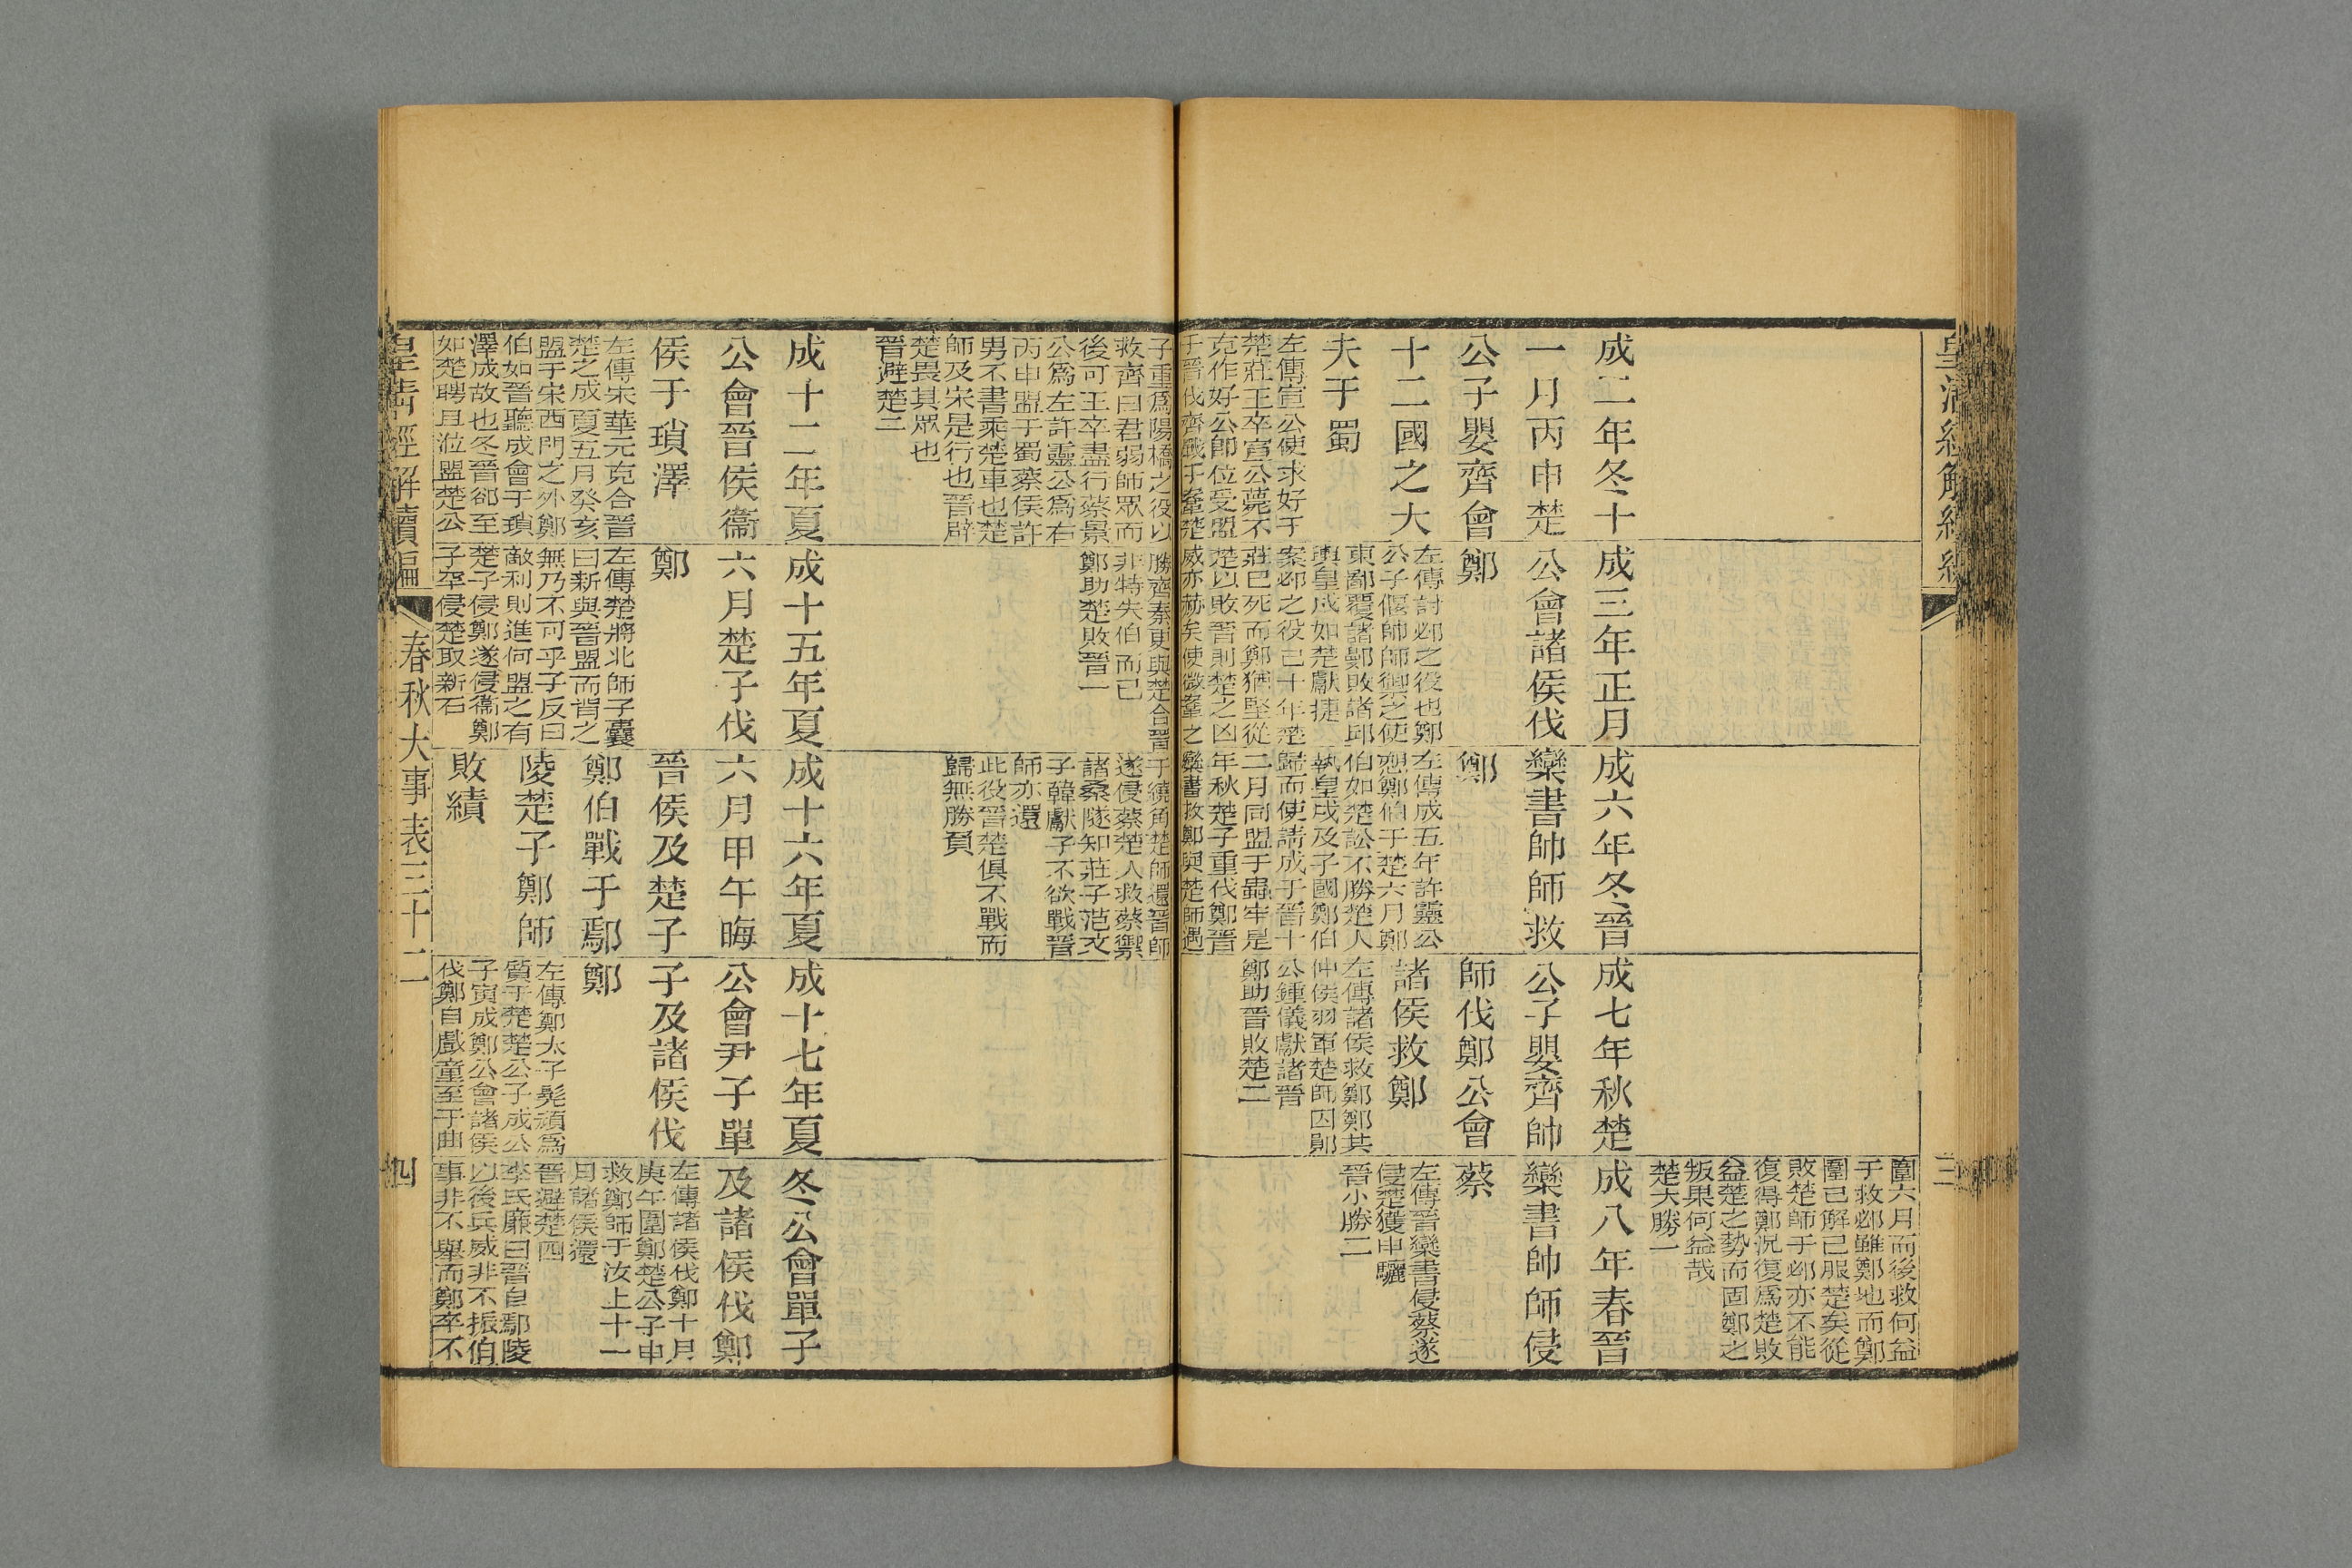 圍六月而後救何益
于救邲雖鄭地而鄭
圍已解已服楚矣從
敗楚師于邲亦不能
復得鄭況復爲楚敗
益楚之勢而固鄭之
叛果何益哉
楚大勝一
成二年冬十
一月丙申楚
公子嬰齊會
十二國之大
夫于蜀
左傳宣公使求好于
楚莊王卒宣公薨不
克作好公卽位受盟
于晉伐齊戰于鞌楚
成三年正月
公會諸侯伐
鄭
左傳討邲之役也鄭
公子偃帥師禦之使
東鄙覆諸鄤敗諸邱
輿皇戌如楚獻捷
案邲之役已十年楚
莊已死而鄭猶堅從
楚以敗晉則楚之凶
威亦赫矣使微鞌之
成六年冬晉
欒書帥師救
鄭
左傳成五年許靈公
愬鄭伯于楚六月鄭
伯如楚訟不勝楚人
執皇戌及子國鄭伯
歸而使請成于晉十
二月同盟于蟲牢是
年秋楚子重伐鄭晉
欒書救鄭與楚師遇
成七年秋楚
公子嬰齊帥
師伐鄭公會
諸侯救鄭
左傳諸侯救鄭鄭共
仲侯羽軍楚師囚鄖
公鍾儀獻諸晉
鄭助晉敗楚二
成八年春晉
欒書帥師侵
蔡
左傳晉欒書侵蔡遂
侵楚獲申驪
晉小勝二
三
子重爲陽橋之役以
救齊曰君弱師眾而
後可王卒盡行蔡景
公爲左許靈公爲右
丙申盟于蜀蔡侯許
男不書乘楚車也楚
師及宋是行也晉辟
楚畏其眾也
晉避楚三
勝齊秦更與楚合晉
非特失伯而已
鄭助楚敗晉一
于繞角楚師還晉師
遂侵蔡楚人救蔡禦
諸桑隧知莊子范文
子韓獻子不欲戰晉
師亦還
此役晉楚俱不戰而
歸無勝負
成十二年夏
公會晉侯衞
侯于瑣澤
左傳宋華元克合晉
楚之成夏五月癸亥
盟于宋西門之外鄭
伯如晉聽成會于瑣
澤成故也冬晉郤至
如楚聘且涖盟楚公
成十五年夏
六月楚子伐
鄭
左傳楚將北師子囊
曰新與晉盟而背之
無乃不可乎子反曰
敵利則進何盟之有
楚子侵鄭遂侵衞鄭
子罕侵楚取新石
成十六年夏
六月甲午晦
晉侯及楚子
鄭伯戰于鄢
陵楚子鄭師
敗績
成十七年夏
公會尹子單
子及諸侯伐
鄭
左傳鄭太子髡頑爲
質于楚楚公子成公
子寅戍鄭公會諸侯
伐鄭自戲童至于曲
冬公會單子
及諸侯伐鄭
左傳諸侯伐鄭十月
庚午圍鄭楚公子申
救鄭師于汝上十一
月諸侯還
晉避楚四
李氏廉曰晉自鄢陵
以後兵威非不振伯
事非不舉而鄭卒不
皇清經解續編
春秋大事表三十二
四